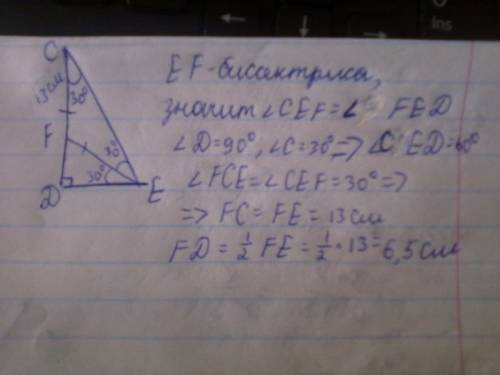 Ins
C
13 см
30°
F
30°
30°
D
E
EF-биссектриса,
значит ∠CEF=∠ FED
∠D=90°, ∠C=30°=> ∠CED=60°
∠FCE=∠CEF=30°=>
=> FC=FE=13см
FD=½FE=½·13=6,5см